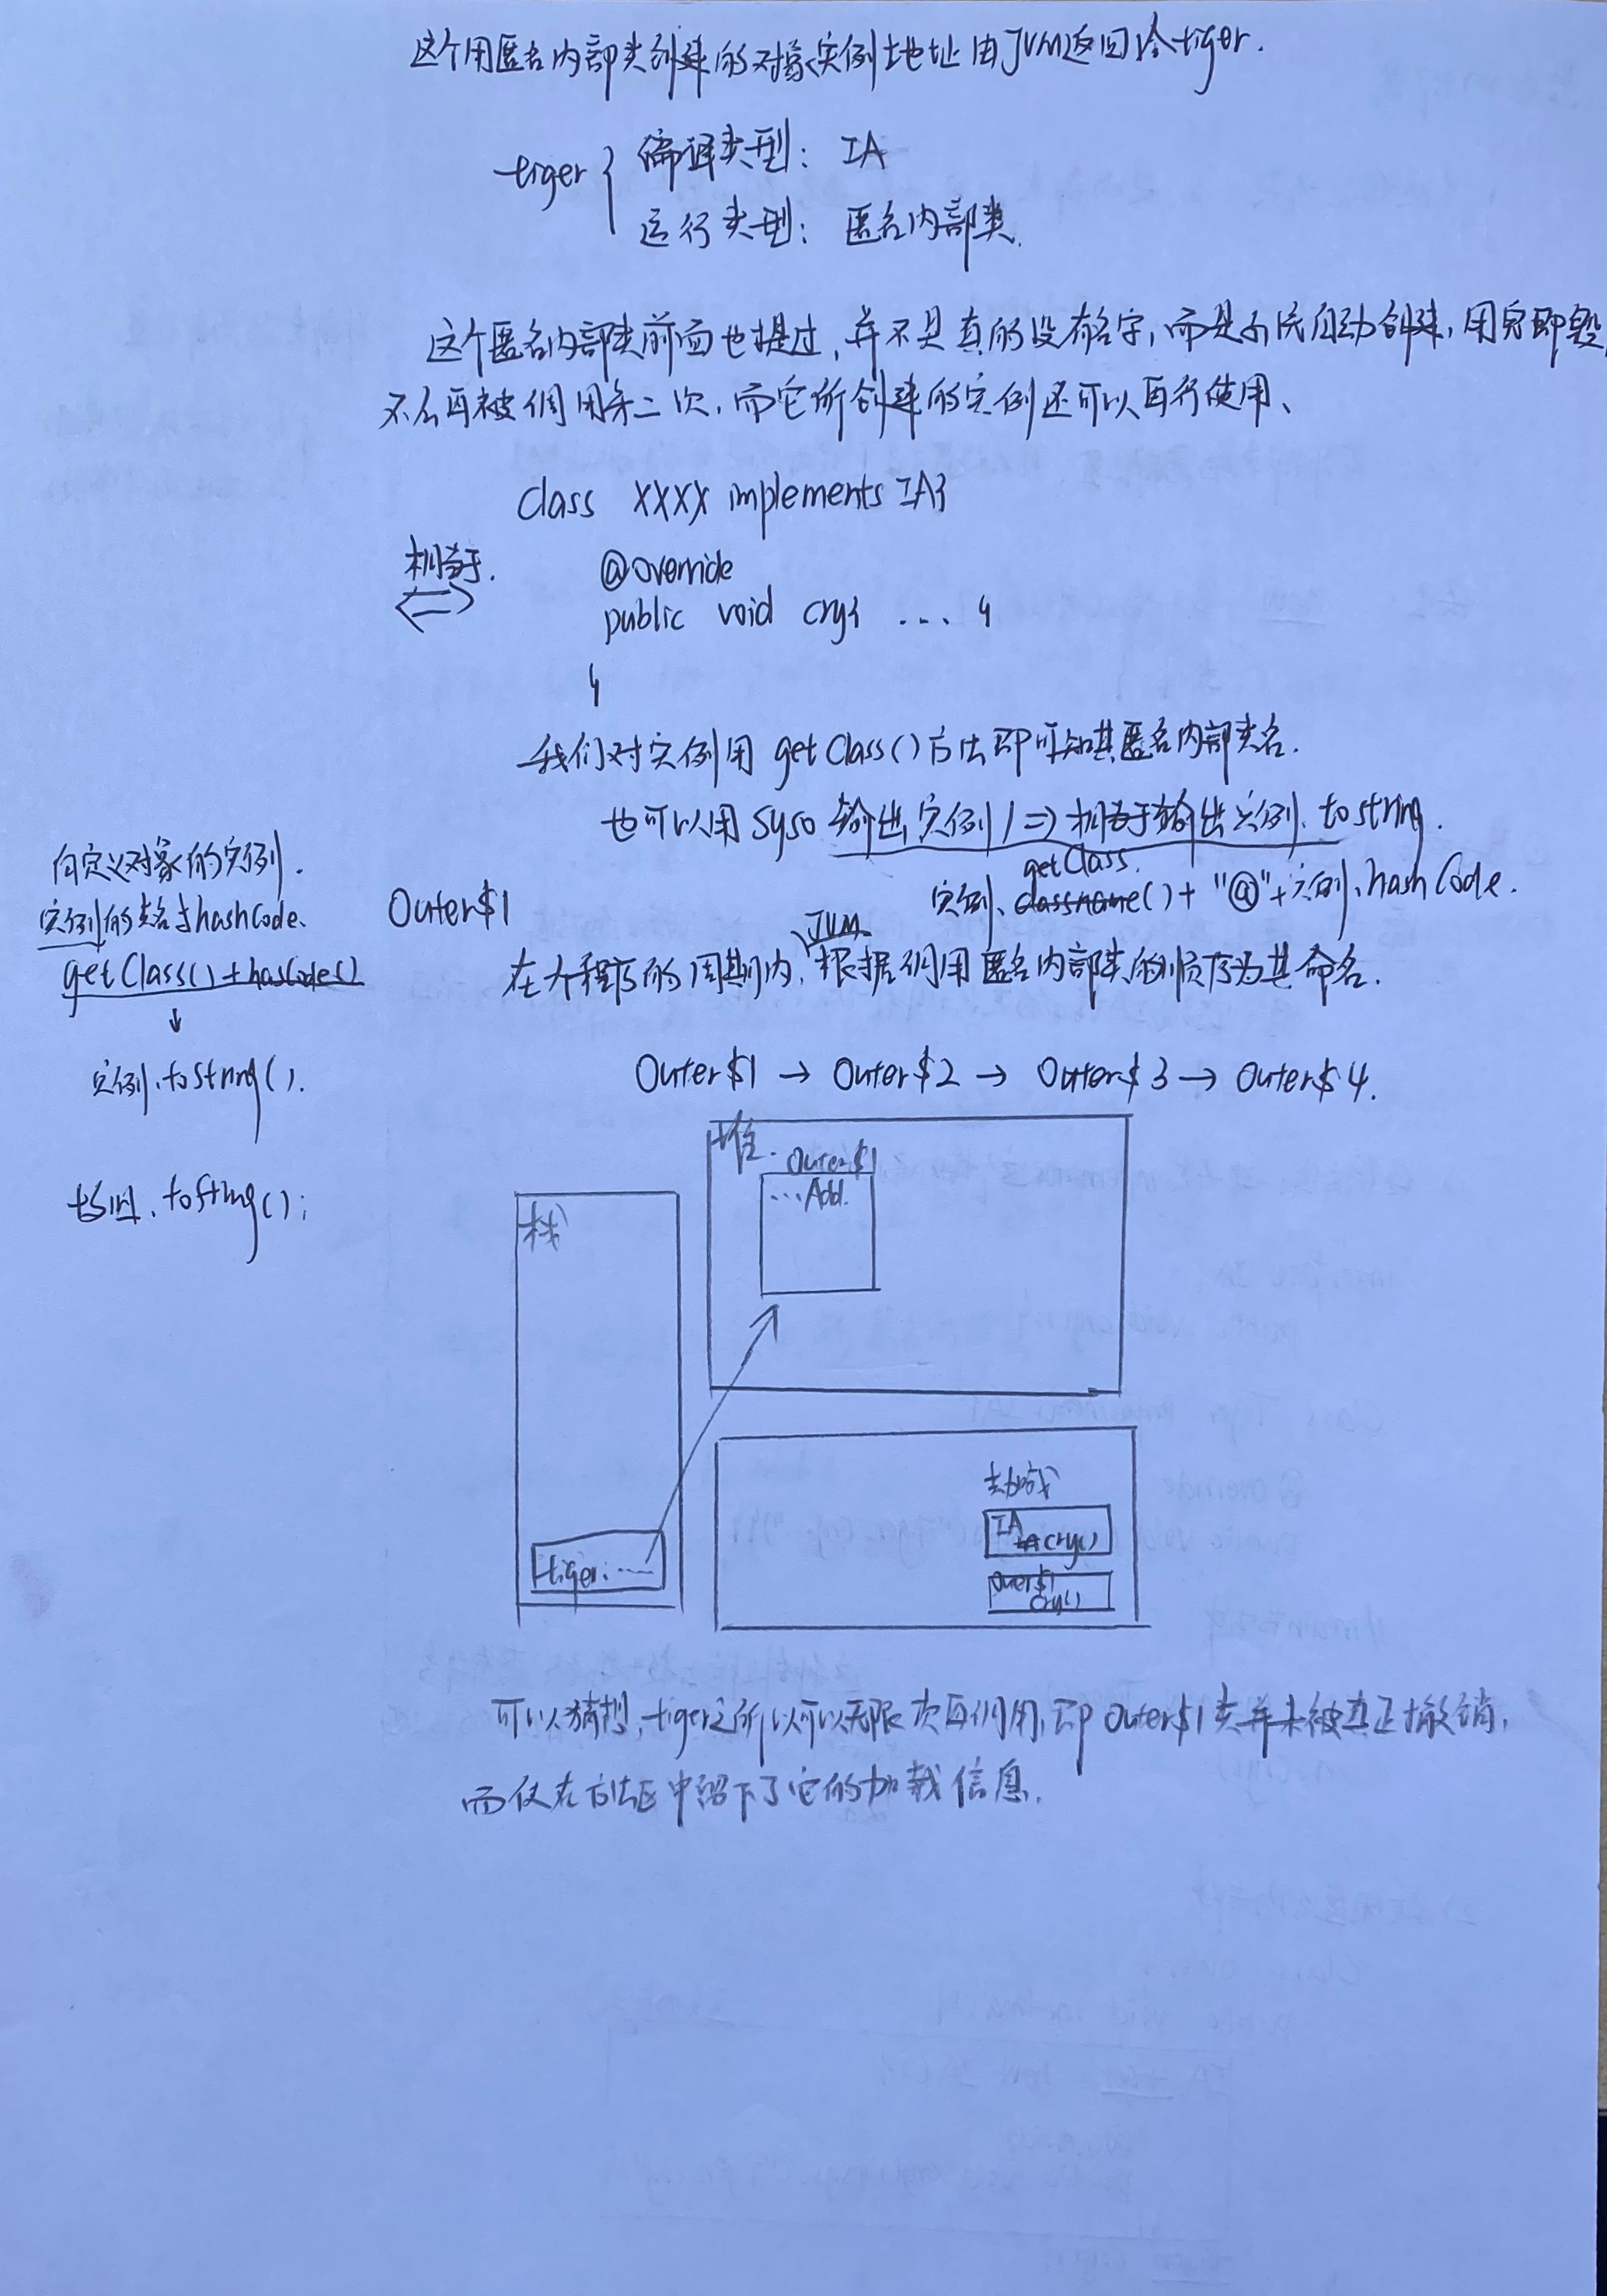 这个用匿名内部类创建的对象实例地址由JVM返回给tiger.
tiger { 编译类型: IA
运行类型: 匿名内部类.
这个匿名内部类前面也提过,并不是真的没有名字,而是系统自动创建,用完即毁,
不会再被调用第二次,而它所创建的实例还可以再行使用、
class XXXX implements IA{
相当于.
@override
public void cry{ ... }
}
我们对实例用 getClass()方法即可知其匿名内部类名.
也可以用 syso 输出实例 / => 相当于输出实例.tostring.
getClass.
实例.classname()+ "@"+实例.hashCode.
自定义对象的实例.
实例的类名与hashCode.
getClass()+hasCode()
↓
实例.toString().
Outer$1
JVM
在个程序的周期内,根据调用匿名内部类的顺序为其命名.
Outer$1 → Outer$2 → Outer$3 → Outer$4.
堆.
Outer$1
...Add.
toString();
栈
tiger:……
类加载
IA
cry()
Outer$1
cry()
可以猜想,tiger之所以可以无限次再调用,即Outer$1类并未被真正撤销,
而仅在方法区中留下了它的加载信息.